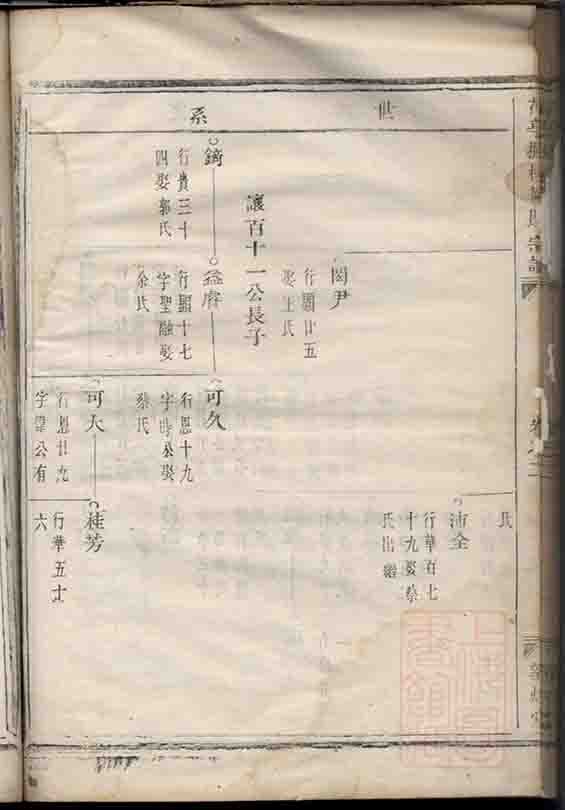 世系
氏
沛全
行華百七
十九娶蔡
氏出繼
閎尹
行顯廿五
娶王氏
讓百十一公長子
鏑
行貴三十
四娶郭氏
益睿
行顯十七
字聖融娶
余氏
可久
行恩十九
字時泉娶
蔡氏
可大
行恩廿九
字偉公有
桂芳
行華五十
六
上海圖書館藏